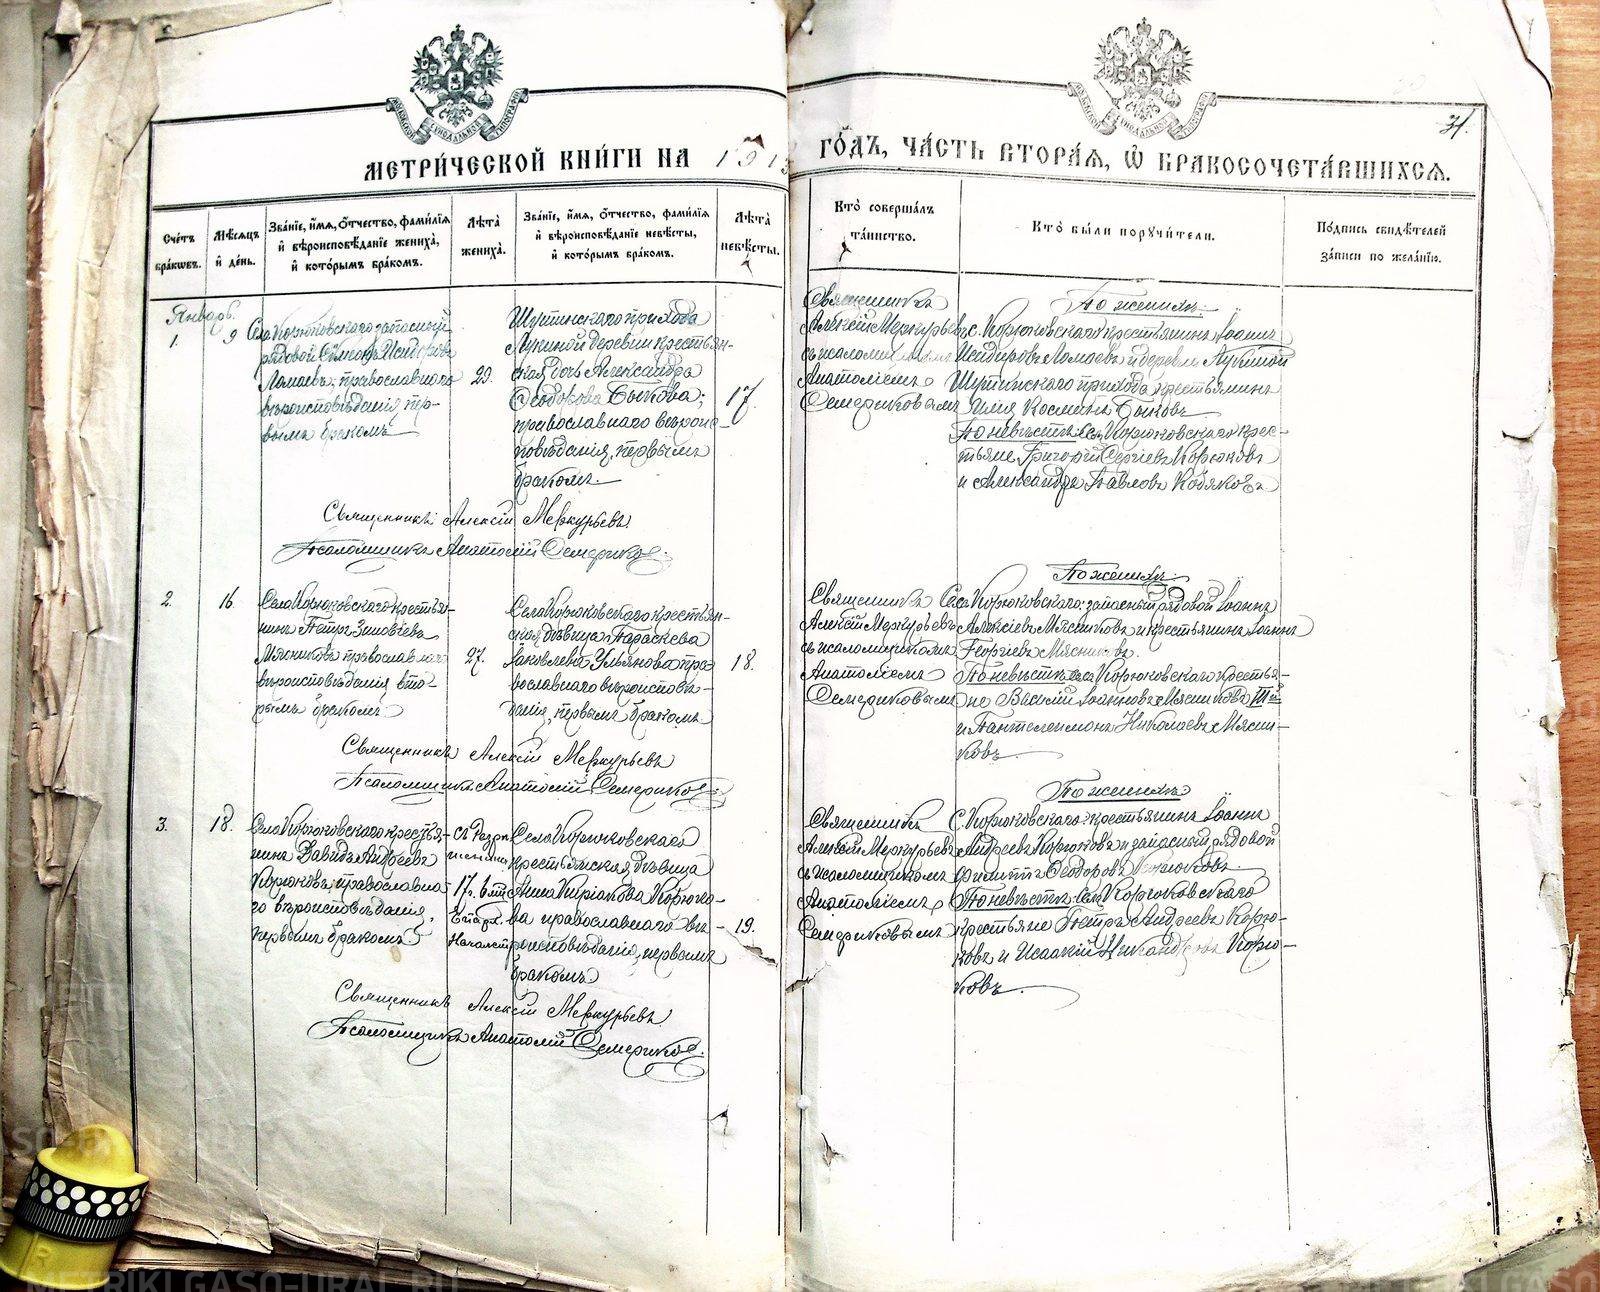 МЕТРИ́ЧЕСКОЙ КНИ́ГИ НА 1913 ГО́ДЪ, ЧА́СТЬ ВТОРА́Я, Ѽ БРАКОСОЧЕТА́ВШИХСЯ.
31.
Сче́тъ бра́кωвъ.
Мѣ́сяцъ и де́нь.
Зва́нїе, и́мя, ѻ́тчество, фами́лїя и вѣроисповѣ́данїе жениха̀, и кото́рымъ бра́комъ.
Лѣ́та жениха̀.
Зва́нїе, и́мя, ѻ́тчество, фами́лїя и вѣроисповѣ́данїе невѣ́сты, и кото́рымъ бра́комъ.
Лѣ́та невѣ́сты.
Кто̀ соверша́лъ та́инство.
Кто̀ бы́ли порꙋчи́тели.
По́дпись свидѣ́телей за́писи по жела́нїю.
Январь
1.
9
Села Корюковскаго запасный
рядовой Симеонъ Исидоровъ
Ломаевъ, православнаго
вѣроисповѣданія пер-
вымъ бракомъ
23.
Шутинскаго прихода
Лукиной деревни крестьян-
ская дочь Александра
Ѳеодорова Быкова;
православнаго вѣроис-
повѣданія, первымъ
бракомъ.
17.
Священникъ
Алексій Меркурьевъ
съ псаломщикомъ
Анатоліемъ
Семериковымъ
По женихѣ:
с. Корюковскаго крестьянинъ Іоаннъ
Исидоровъ Ломаевъ и деревни Лукиной
Шутинскаго прихода крестьянинъ
Илія Косминъ Быковъ
По невѣстѣ: села Корюковскаго крес-
тьяне Григорій Сергіевъ Корюковъ
и Александръ Павловъ Кодяковъ
Священникъ Алексій Меркурьевъ
Псаломщикъ Анатолій Семериковъ.
2.
16.
Села Корюковскаго крестья-
нинъ Петръ Зиновіевъ
Мясниковъ православнаго
вѣроисповѣданія вто-
рымъ бракомъ
27.
Села Корюковскаго крестьян-
ская дѣвица Параскева
Іаковлева Ульянова пра-
вославнаго вѣроисповѣ-
данія, первымъ бракомъ
18.
Священникъ
Алексій Меркурьевъ
съ псаломщикомъ
Анатоліемъ
Семериковымъ
По женихѣ:
Села Корюковскаго: запасный рядовой Іоаннъ
Алексіевъ Мясниковъ и крестьянинъ Іоаннъ
Георгіевъ Мясниковъ.
По невѣстѣ: села Корюковскаго крестья-
не Василій Іоанновъ Мясниковъ III-й
и Пантелеимонъ Николаевъ Мясни-
ковъ
Священникъ Алексій Меркурьевъ
Псаломщикъ Анатолій Семериковъ
3.
18.
Села Корюковскаго крестья-
нинъ Давидъ Андреевъ
Корюковъ, православна-
го вѣроисповѣданія,
первымъ бракомъ
съ разрѣ-
шенія
17 л. 6 м.
Епарх.
Начальст
Села Корюковскаго
крестьянская дѣвица
Анна Киріакова Корюко-
ва православнаго вѣ-
роисповѣданія, первымъ
бракомъ
19.
Священникъ
Алексій Меркурьевъ
съ псаломщикомъ
Анатоліемъ
Семериковымъ
По женихѣ
С. Корюковскаго: крестьянинъ Іоаннъ
Андреевъ Корюковъ и запасный рядовой
Филиппъ Ѳеодоровъ Корюковъ.
По невѣстѣ: села Корюковскаго
крестьяне Петръ Андреевъ Корю-
ковъ и Исаакій Никандровъ Корю-
ковъ.
Священникъ Алексій Меркурьевъ
Псаломщикъ Анатолій Семериковъ.
METRIKI.GASO-URAL.RU